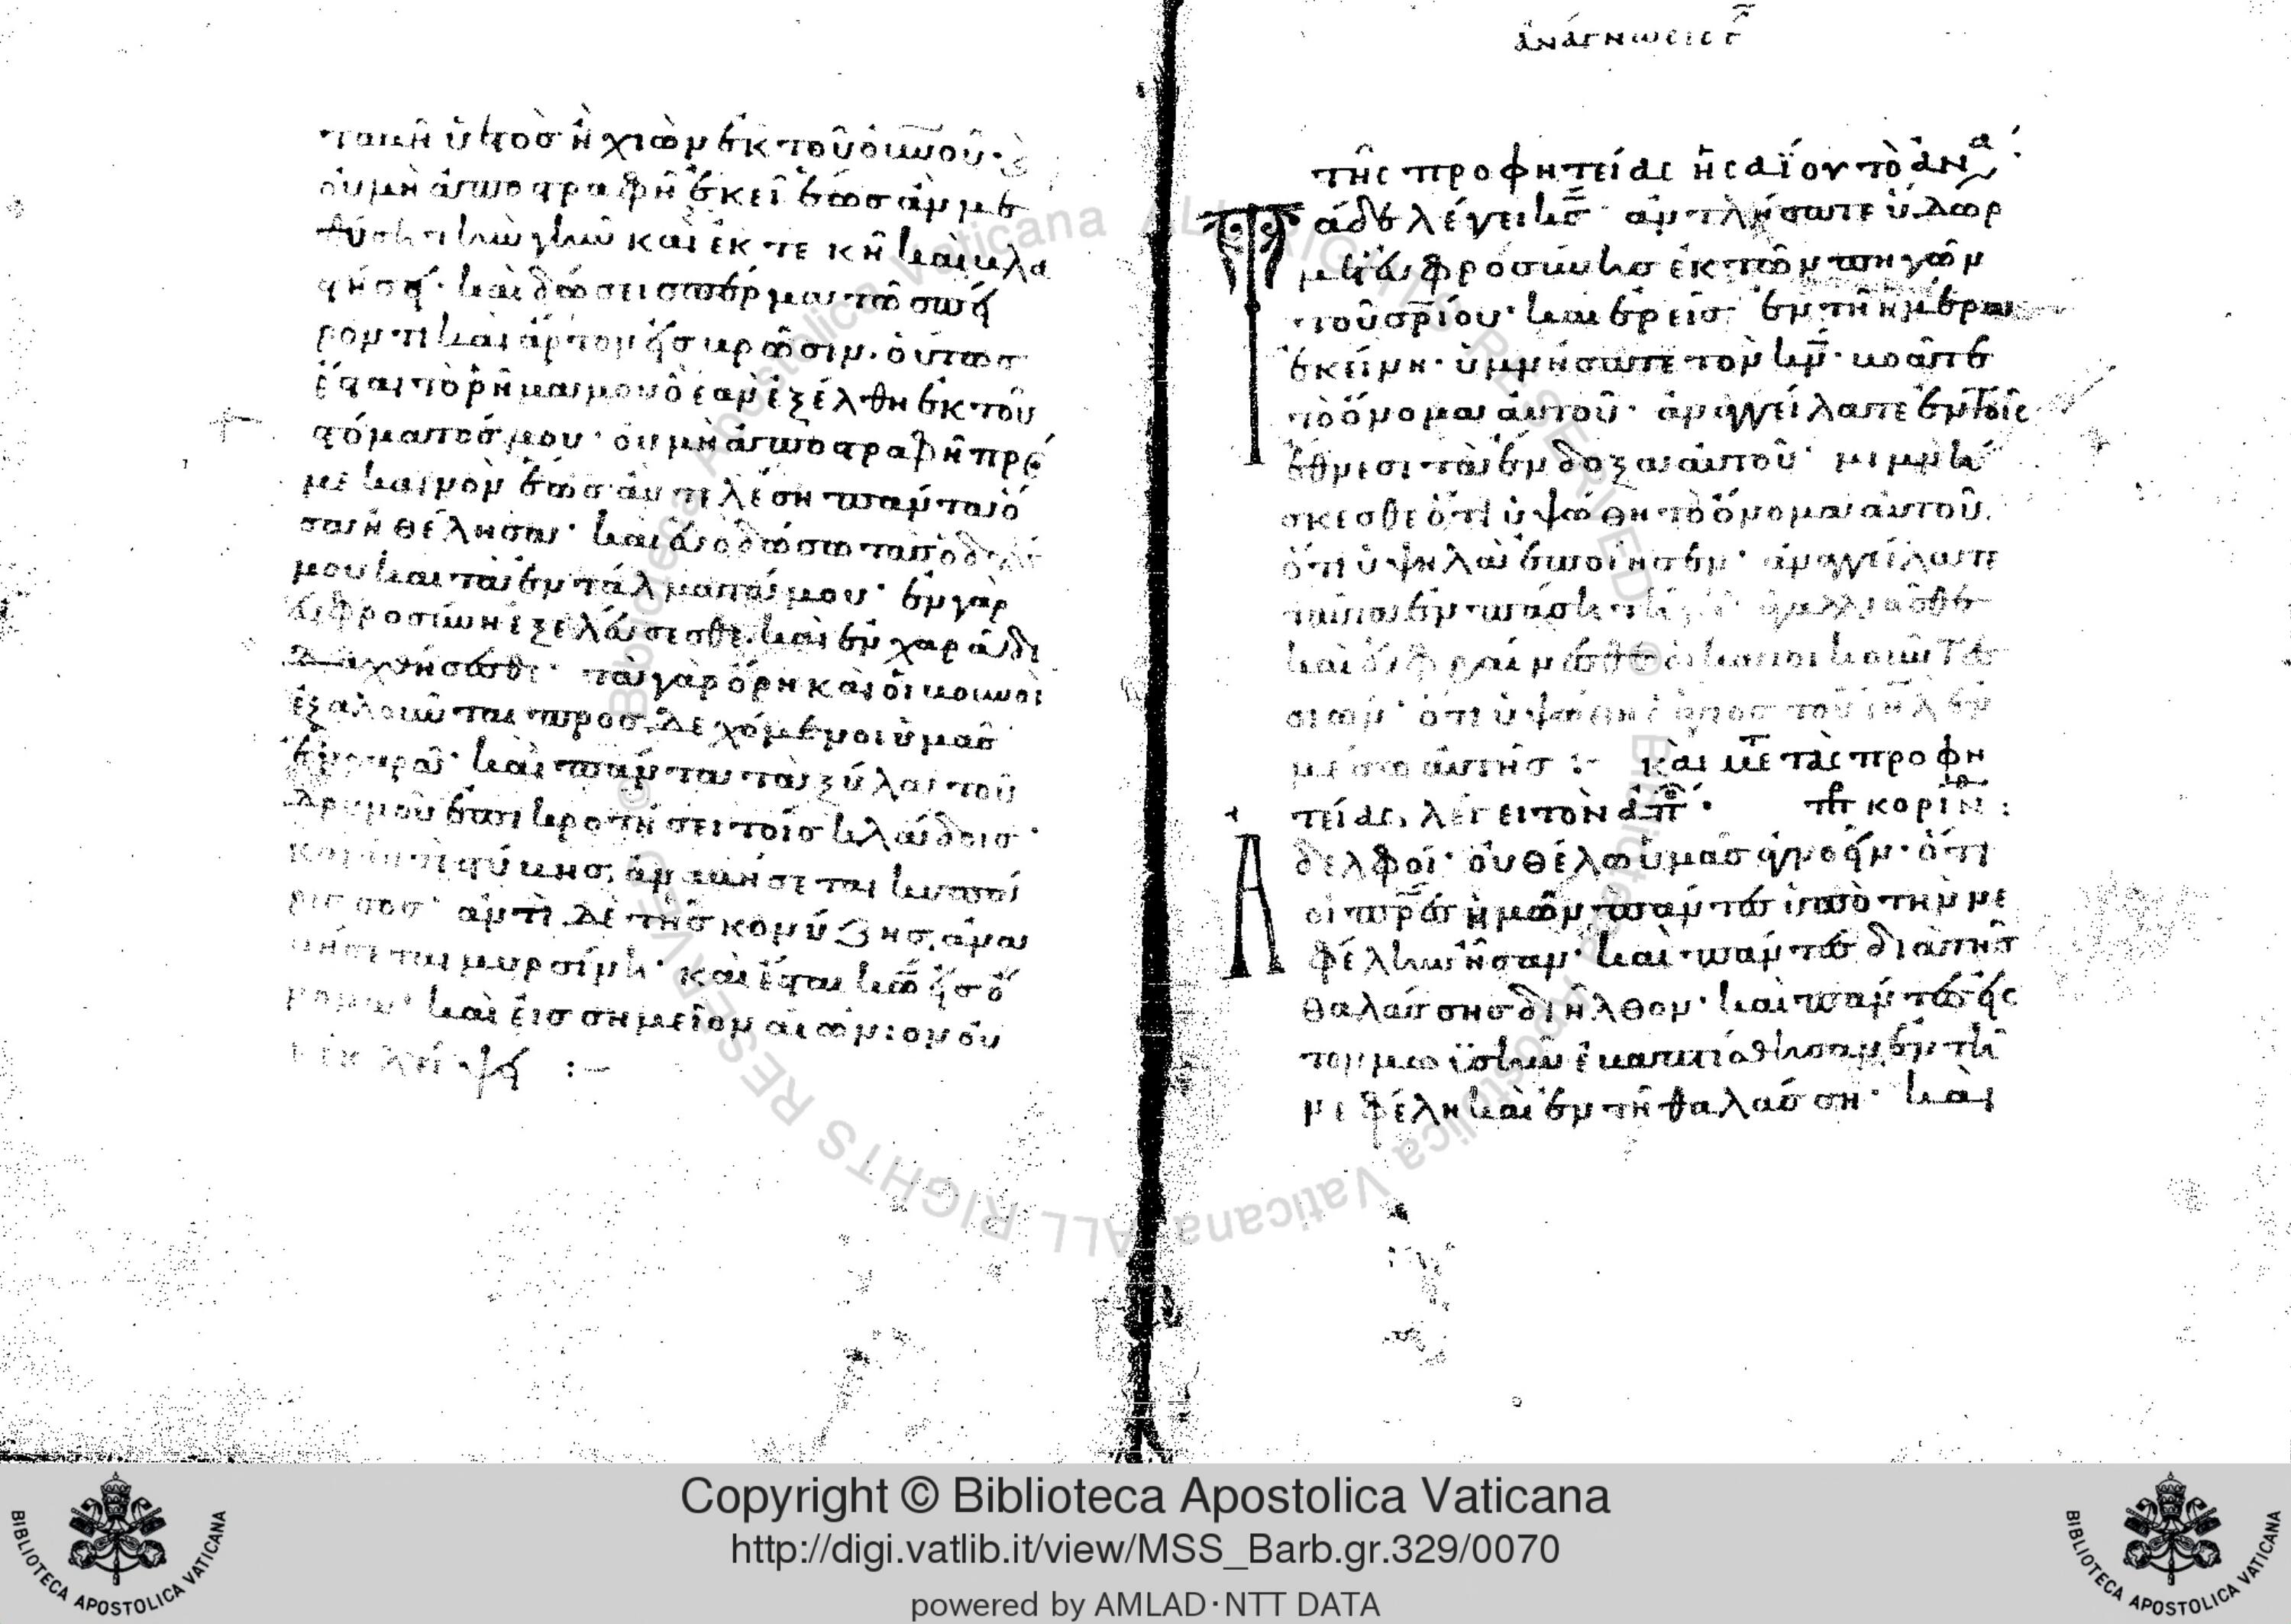 ταβῆ ὑετὸσ ἢ χιὼν ἐκ τοῦ οὐνοῦ·
οὐ μὴ ἀποστραφῆ ἐκεῖ ἕωσ ἂν με
θύση τὴν γῆν καὶ ἐκτέκη καὶ βλα
στήση· καὶ δώσει σπέρμα τῶ σπεί
ροντι καὶ ἄρτον εἰσ βρῶσιν. οὕτωσ
ἔσται τὸ ῥῆμα μου ὃ ἐὰν ἐξέλθη ἐκ τοῦ
στόματόσ μου· οὐ μὴ ἀποστραφῆ πρό
με κενὸν ἕωσ ἂν τελέση πάντα ὅ
σα ἠθέλησα· καὶ εὐοδώσω τὰσ ὁδούσ
μου καὶ τὰ ἐντάλματά μου· ἐν γὰρ
εὐφροσύνη ἐξελεύσεσθε. καὶ ἐν χαρᾶ δι
δαχθήσεσθε· τὰ γὰρ ὄρη καὶ οἱ βουνοὶ
ἐξαλοῦνται προσδεχόμενοι ὑμᾶσ
ἐν χαρᾶ· καὶ πάντα τὰ ξύλα τοῦ
δρυμοῦ ἐπικροτήσει τοῖσ κλάδοισ·
καὶ ἀντὶ στύβησ, ἀναβήσεται κυπά
ρισσοσ· ἀντὶ δὲ τῆσ κονύζησ, ἀνα
βήσεται μυρσίνη· καὶ ἔσται κω εἰσ ὄ
νομα· καὶ εἰσ σημεῖον αἰώνιον οὐ
κ ἐκλείψει :–
ἀνάγνωσις γ
τῆς προφητείας ἡσαΐου τὸ ἀνα
Τάδε λέγει κσ· ἀντλήσατε ὕδωρ
μετ' εὐφροσύνησ ἐκ τῶν πηγῶν
τοῦ σρίου· καὶ ἐρεῖσ ἐν τῆ ἡμέρα
ἐκείνη· ὑμνήσατε τὸν κν· βοᾶτε
τὸ ὄνομα αὐτοῦ· ἀναγγείλατε ἐν τοῖς
ἔθνεσι τὰ ἔνδοξα αὐτοῦ· μιμνή
σκεσθε ὅτι ὑψώθη τὸ ὄνομα αὐτοῦ.
ὅτι ὑψηλὰ ἐποίησεν· ἀναγγείλατε
ταῦτα ἐν πάση τῆ γῆ· ἀγαλλιᾶσθε
καὶ εὐφραίνεσθε οἱ κατοικοῦντεσ
σιών· ὅτι ὑψώθη ὁ ἅγιοσ τοῦ ιηλ ἐν
μέσω αὐτῆσ :– καὶ μετ τὰς προφη
τείας, λέγει τὸν ἀπο· πρ κορινθ :
Αδελφοί· οὐ θέλω ὑμᾶσ ἀγνοεῖν· ὅτι
οἱ πρεσ ἡμῶν πάντεσ ὑπὸ τὴν νε
φέλην ἦσαν· καὶ πάντεσ διὰ τῆσ
θαλάσσησ διῆλθον· καὶ πάντεσ εἰς
τὸν μωϋσῆν ἐβαπτίσθησαν ἐν τῆ
νεφέλη καὶ ἐν τῆ θαλάσση· καὶ
Copyright © Biblioteca Apostolica Vaticana
http://digi.vatlib.it/view/MSS_Barb.gr.329/0070
powered by AMLAD·NTT DATA
BIBLIOTECA APOSTOLICA VATICANA
BIBLIOTECA APOSTOLICA VATICANA
Biblioteca Apostolica Vaticana ALL RIGHTS RESERVED ©